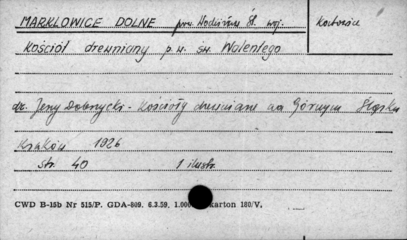 MARKLOWICE DOLNE pow. Wodzisław Śl. woj. Katowice
Kościół drewniany p.w. św. Walentego
dr. Jerzy Dobrzycki - Kościoły drewniane na Górnym Śląsku
Kraków 1926
str. 40 1 ilustr.
CWD B-15b Nr 515/P. GDA-809. 6.3.59. 1.000 karton 180/V.